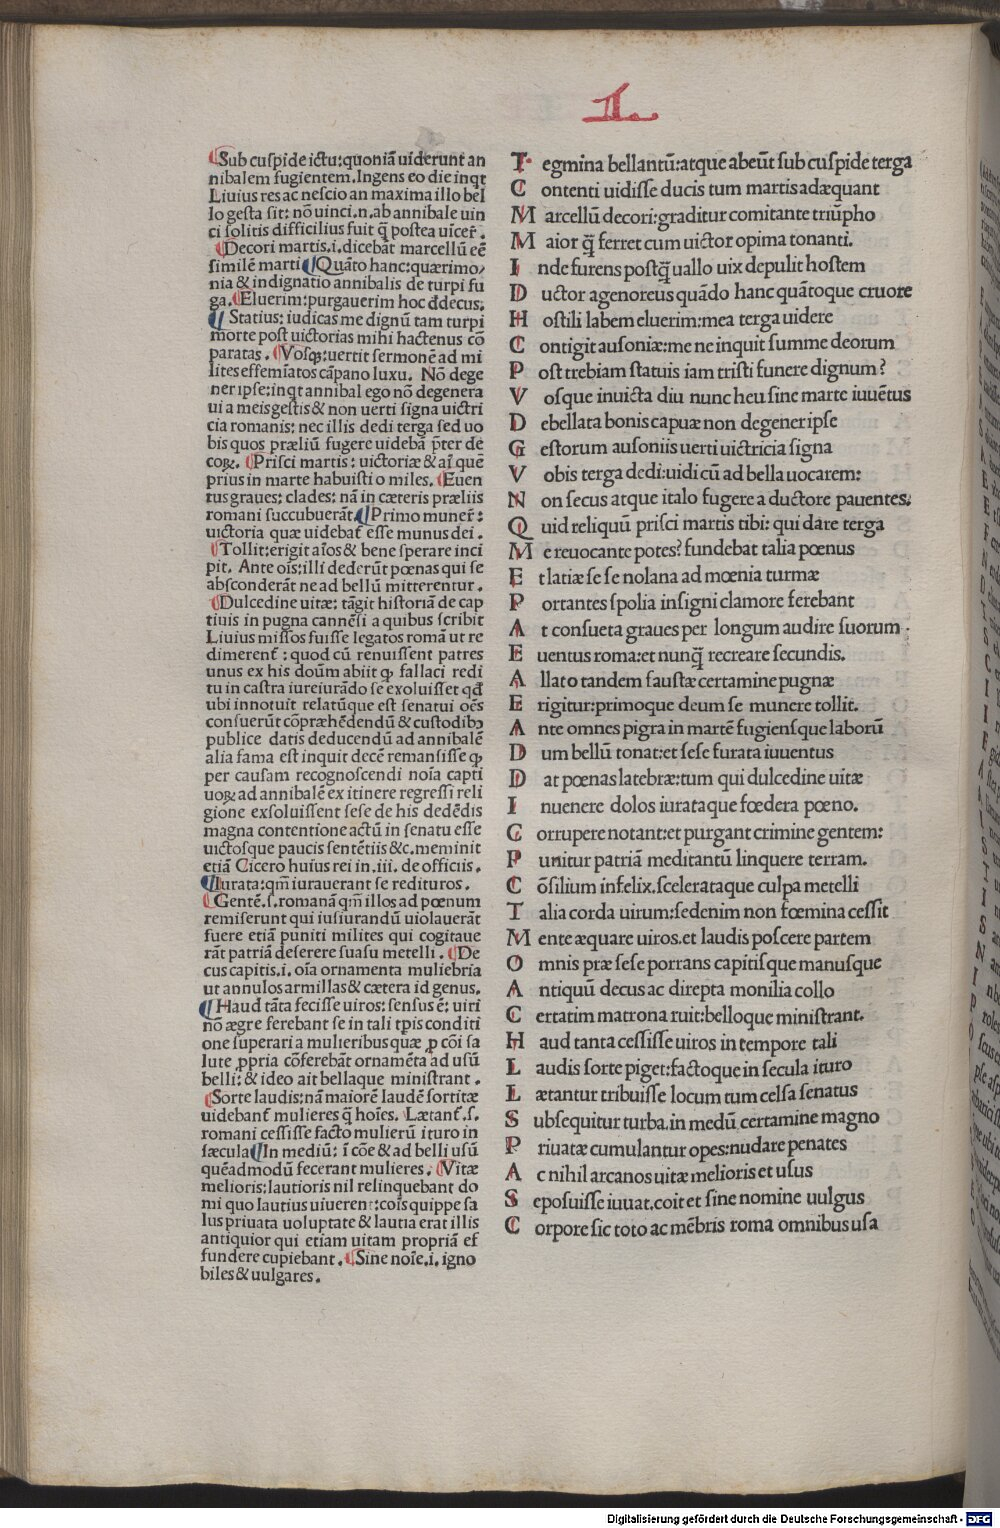 II.
¶Sub cuſpide ictu:quoniā uiderunt an
nibalem fugientem. Ingens eo die inqt
Liuius res ac neſcio an maxima illo bel
lo geſta ſit: nō uinci.n.ab annibale uin
ci ſolitis difficilius fuit q̄ poſtea uicer̄.
¶Decori martis.i.dicebāt marcellū eē
ſimilē marti ¶Quāto hanc:quærimo/
nia & indignatio annibalis de turpi fu
ga. ¶Eluerim:purgauerim hoc ddecus.
¶Statius: iudicas me dignū tam turpi
morte poſt uictorias mihi hactenus cō
paratas. ¶Voſqꝫ:uertit ſermonē ad mi
lites effemīatos cāpano luxu. Nō dege
ner ipſe:inqt annibal ego nō degenera
ui a meis geſtis & non uerti ſigna uictri
cia romanis: nec illis dedi terga ſed uo
bis quos præliū fugere uidebā p̄ter de
coꝝ. ¶Priſci martis: uictoriæ & aī quē
prius in marte habuiſti o miles. ¶Euen
tus graues: clades: nā in cæteris præliis
romani ſuccubuerāt ¶Primo muner̄:
uictoria quæ uidebat̄ eſſe munus dei.
¶Tollit:erigit aīos & bene ſperare inci
pit. Ante oīs:illi dederūt pœnas qui ſe
abſconderāt ne ad bellū mitterentur.
¶Dulcedine uitæ: tāgit hiſtoriā de cap
tiuis in pugna cannēſi a quibus ſcribit
Liuius miſſos fuiſſe legatos romā ut re
dimerent̄: quod cū renuiſſent patres
unus ex his doūm abiit ꝙ fallaci redi
tu in caſtra iureiurādo ſe exoluiſſet qd̄
ubi innotuit relatūque eſt ſenatui oēs
conſuerūt cōpræhēdendū & cuſtodibꝫ
publice datis deducendū ad annibalē
alia fama eſt inquit decē remanſiſſe ꝙ
per cauſam recognoſcendi noīa capti
uoꝝ ad annibalē ex itinere regreſſi reli
gione exſoluiſſent ſeſe de his dedēdis
magna contentione actū in ſenatu eſſe
uictoſque paucis ſentētiis &c.meminit
etiā Cicero huius rei in.iii. de officiis.
¶Iurata:qm̄ iurauerant ſe redituros.
¶Gentē.ſ.romanā qm̄ illos ad pœnum
remiſerunt qui iuſiurandū uiolauerāt
fuere etiā puniti milites qui cogitaue
rāt patriā deſerere ſuaſu metelli. ¶De
cus capitis.i.oīa ornamenta muliebria
ut annulos armillas & cætera id genus.
¶Haud tāta feciſſe uiros: ſenſus ē: uiri
nō ægre ferebant ſe in tali tp̄is conditi
one ſuperari a mulieribus quæ ꝓ cōi ſa
lute ꝓpria cōferebāt ornamēta ad uſū
belli: & ideo ait bellaque miniſtrant.
¶Sorte laudis: nā maiorē laudē ſortitæ
uidebant̄ mulieres q̄ hoīes. Lætant̄.ſ.
romani ceſſiſſe facto mulierū ituro in
ſæcula ¶In mediū: ī cōe & ad belli uſū
quēadmodū fecerant mulieres. ¶Vitæ
melioris:lautioris nil relinquebant do
mi quo lautius uiuerent:coīs quippe ſa
lus priuata uoluptate & lautia erat illis
antiquior qui etiam uitam propriā ef
fundere cupiebant. ¶Sine noīe.i. igno
biles & uulgares.
T egmina bellantū:atque abeūt ſub cuſpide terga
C ontenti uidiſſe ducis tum martis adæquant
M arcellū decori:graditur comitante triūpho
M aior q̄ ferret cum uictor opima tonanti.
I nde furens poſtq̄ uallo uix depulit hoſtem
D uctor agenoreus quādo hanc quātoque cruore
H oſtili labem eluerim:mea terga uidere
C ontigit auſoniæ:me ne inquit ſumme deorum
P oſt trebiam ſtatuis iam triſti funere dignum?
V oſque inuicta diu nunc heu ſine marte iuuētus
D ebellata bonis capuæ non degener ipſe
G eſtorum auſoniis uerti uictricia ſigna
V obis terga dedi:uidi cū ad bella uocarem:
N on ſecus atque italo fugere a ductore pauentes.
Q uid reliquū priſci martis tibi: qui dare terga
M e reuocante potes? fundebat talia pœnus
E t latiæ ſe ſe nolana ad mœnia turmæ
P ortantes ſpolia inſigni clamore ferebant
A t conſueta graues per longum audire ſuorum
E uentus roma:et nunq̄ recreare ſecundis.
A llato tandem fauſtæ certamine pugnæ
E rigitur:primoque deum ſe munere tollit.
A nte omnes pigra in martē fugienſque laborū
D um bellū tonat:et ſeſe furata iuuentus
D at pœnas latebræ:tum qui dulcedine uitæ
I nuenere dolos iurataque fœdera pœno.
C orrupere notant:et purgant crimine gentem:
P unitur patriā meditantū linquere terram.
C ōſilium infelix.ſcelerataque culpa metelli
T alia corda uirum:ſedenim non fœmina ceſſit
M ente æquare uiros.et laudis poſcere partem
O mnis præ ſeſe porrans capitiſque manuſque
A ntiquū decus ac direpta monilia collo
C ertatim matrona ruit:belloque miniſtrant.
H aud tanta ceſſiſſe uiros in tempore tali
L audis ſorte piget:factoque in ſecula ituro
L ætantur tribuiſſe locum tum celſa ſenatus
S ubſequitur turba.in medū certamine magno
P riuatæ cumulantur opes:nudare penates
A c nihil arcanos uitæ melioris et uſus
S epoſuiſſe iuuat.coit et ſine nomine uulgus
C orpore ſic toto ac mēbris roma omnibus uſa
Digitalisierung gefördert durch die Deutsche Forschungsgemeinschaft - DFG